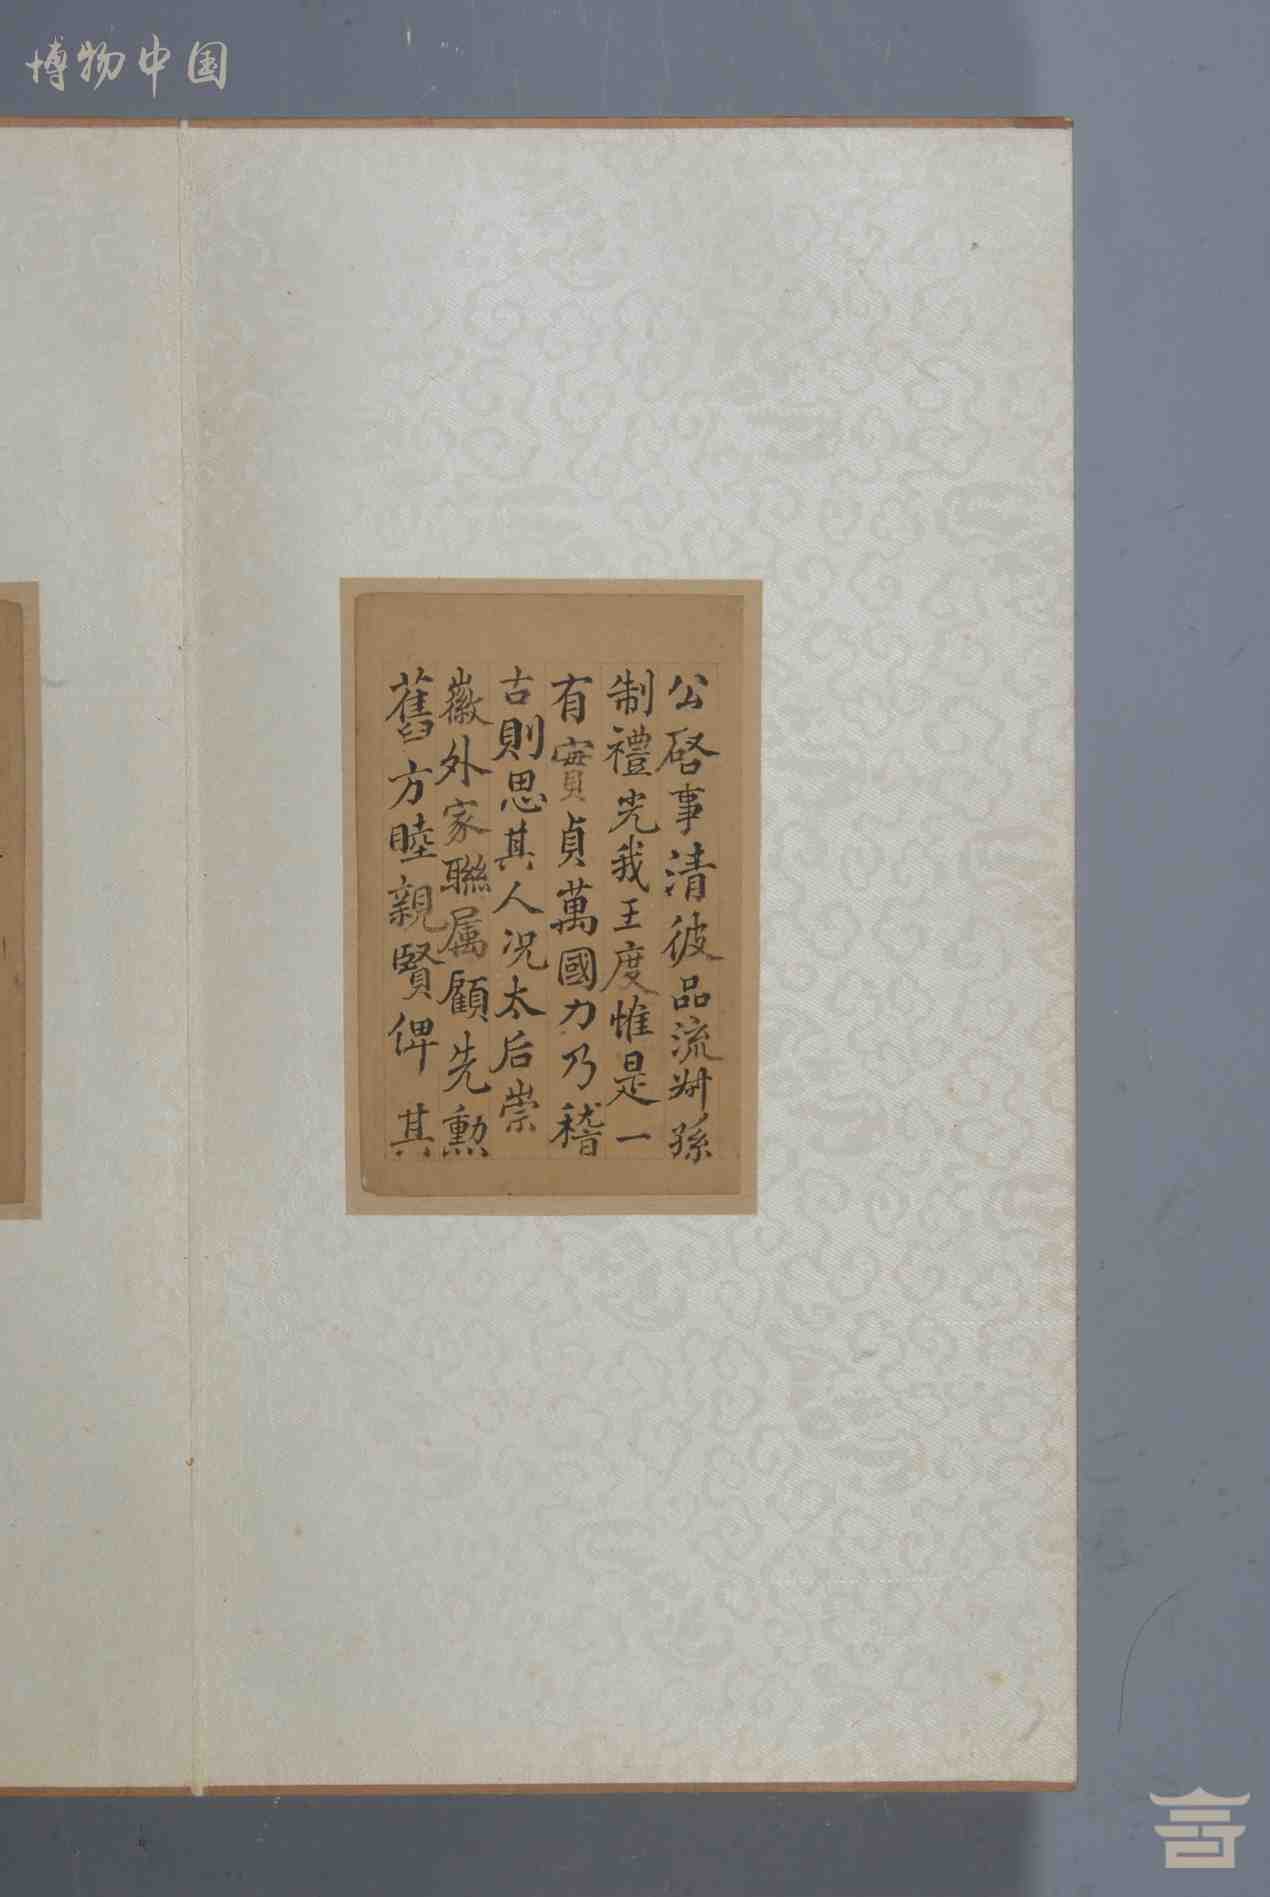 博物中国
公啓事清彼品流辨孫
制禮光我王度惟是一
有實貞萬國力乃稽
古則思其人況太后崇
徽外家聯属顧先勳
舊方睦親賢俾其